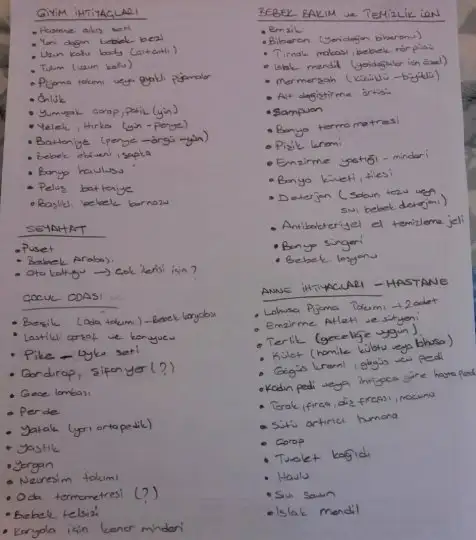 GİYİM İHTİYAÇLARI
• Hastane çıkış seti
• Yeni doğan bebek bezi
• Uzun kollu body (çıtçıtlı)
• Tulum (uzun kollu)
• Pijama takımı veya ayaklı pijamalar
• Önlük
• Yumuşak çorap, patik (yün)
• Yelek, Hırka (yün - penye)
• Battaniye (penye - örgü - yün)
• Bebek eldiveni, şapka
• Banyo havlusu
• Peluş battaniye
• Başlıklı bebek bornozu
SEYAHAT
• Puset
• Bebek Arabası
• Oto koltuğu → Çok ilerisi için ?
ÇOCUK ODASI
• Beşik (Oda takımı) - Bebek karyolası
• Lastikli çarşaf ve koruyucu
• Pike - Uyku seti
• Gardırap, şifonyer (?)
• Gece lambası
• Perde
• Yatak (yarı ortapedik)
• Yastık
• Yorgan
• Nevresim takımı
• Oda termometresi (?)
• Bebek telsizi
• Karyola için kenar minderi
BEBEK BAKIM ve TEMİZLİK İÇİN
• Emzik
• Biberon (Yenidoğan biberonu)
• Tırnak makası, bebek törpüsü
• Islak mendil (yenidoğanlar için özel)
• Mermerşah (küçüklü - büyüklü)
• Alt değiştirme örtüsü
• Şampuan
• Banyo termometresi
• Pişik kremi
• Emzirme yastığı - minderi
• Banyo küveti, filesi
• Deterjan (Sabun tozu veya
sıvı bebek deterjanı)
• Antibakteriyel el temizleme jeli
• Banyo süngeri
• Bebek losyonu
ANNE İHTİYAÇLARI - HASTANE
• Lohusa Pijama Takımı → 2 adet
• Emzirme Atleti ve sütyeni
• Terlik (geceliğe uygun)
• Külot (hamile külotu veya lohusa)
• Göğüs kremi, göğüs ucu pedi
• Kadın pedi veya ihtiyaca göre hasta pedi
• Tarak, fırça, diş fırçası, macunu
• Sütü artırıcı humana
• Çorap
• Tuvalet kağıdı
• Havlu
• Sıvı Sabun
• Islak mendil